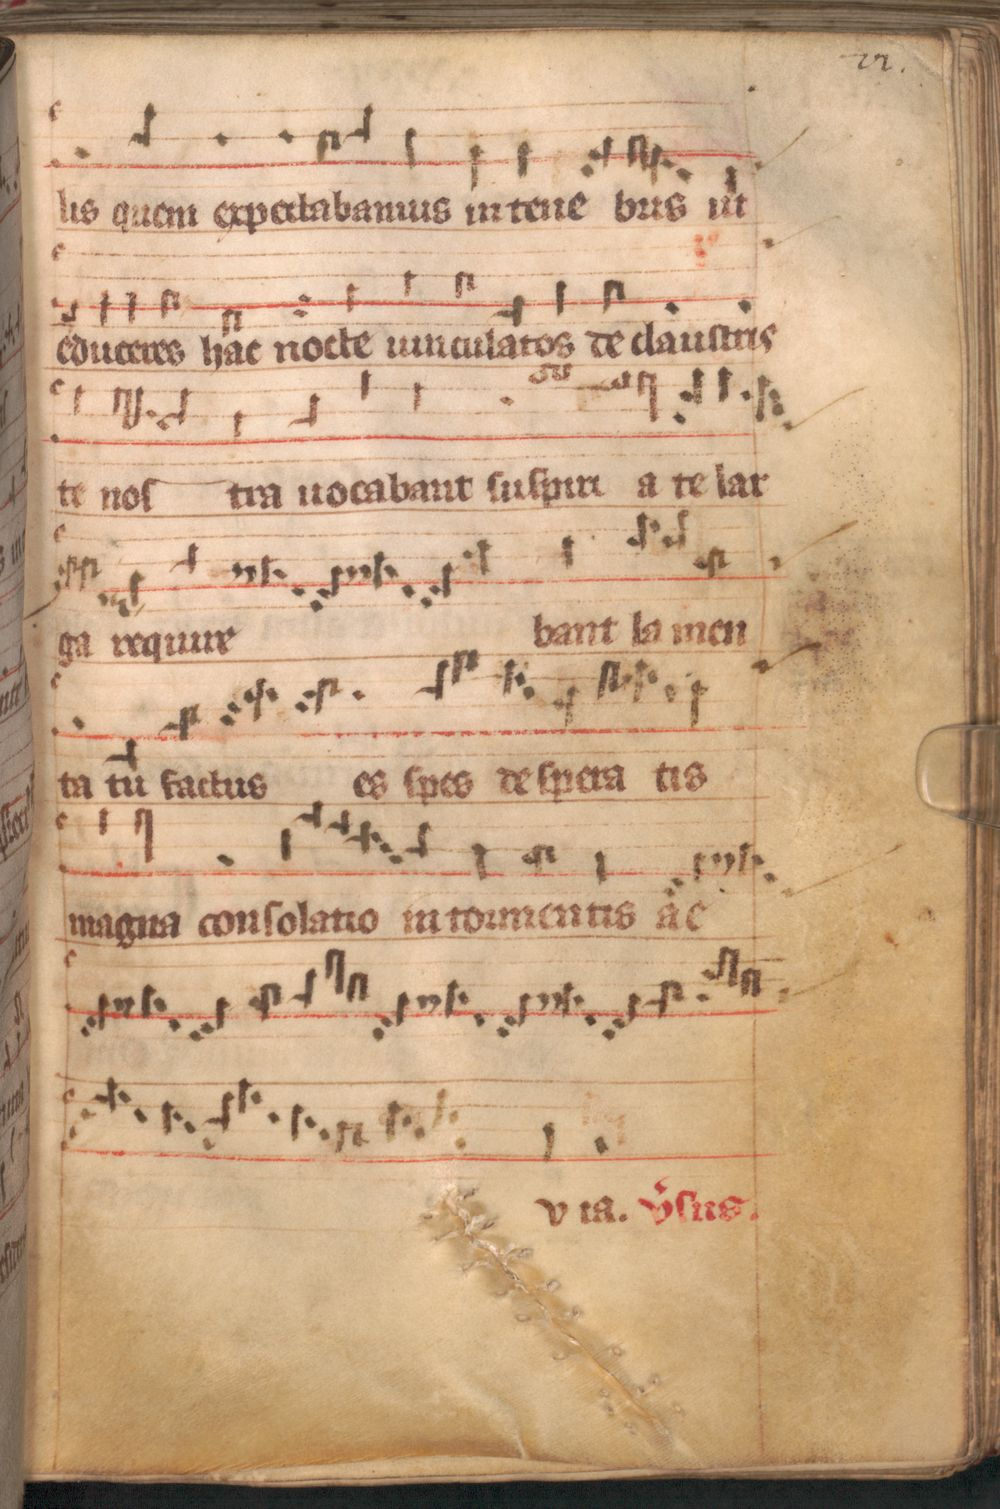 22.
lis quem expectabamus in tene bris ut
educeres hac nocte uinculatos de claustris
te nos tra uocabant suspiri a te lar
ga require bant la men
ta tu factus es spes despera tis
magna consolatio in tormentis ae
v ia. v̓sus.